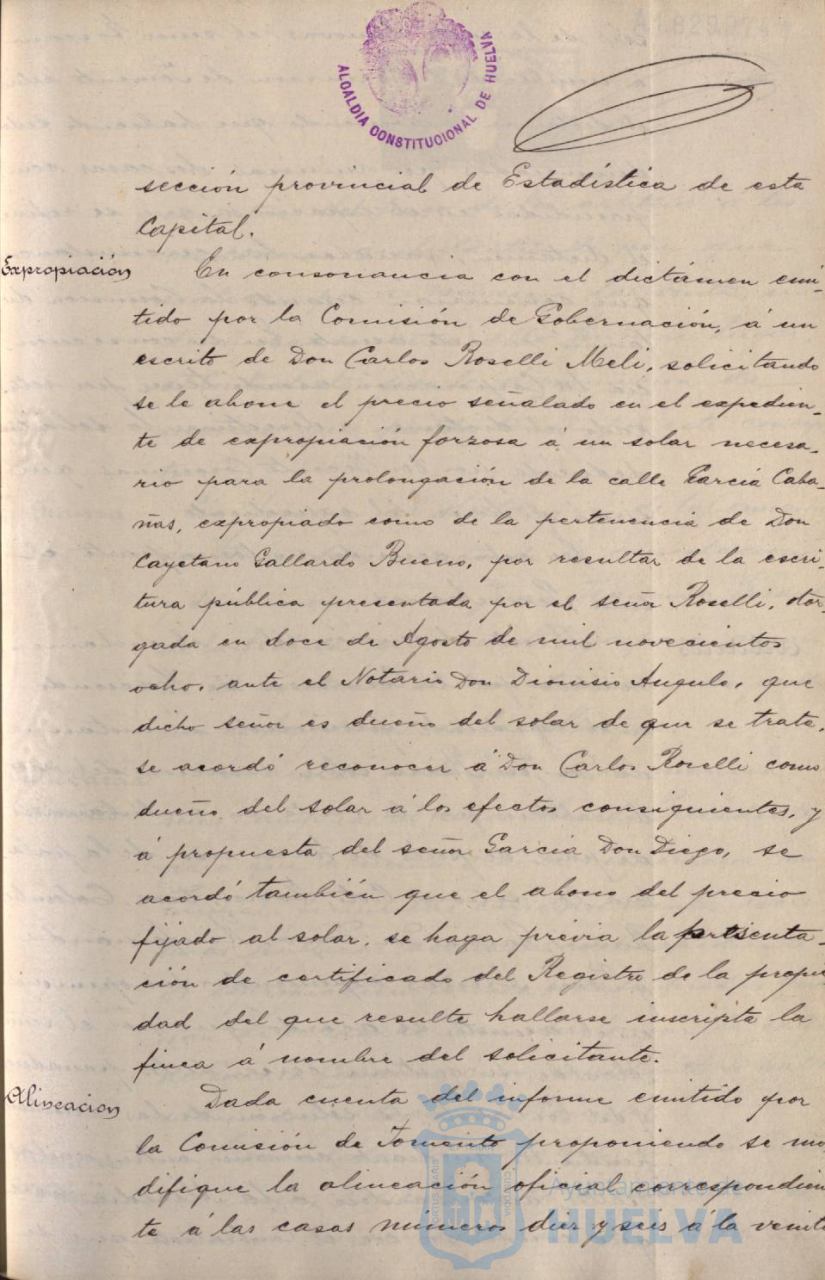 ALCALDÍA CONSTITUCIONAL DE HUELVA
sección provincial de Estadística de esta
Capital.
Expropiación
En consonancia con el dictámen emi-
tido por la Comisión de Gobernación, á un
escrito de Don Carlos Roselli Meli, solicitando
se le abone el precio señalado en el expedien-
te de expropiación forzosa á un solar necesa-
rio para la prolongación de la calle García Caba-
ñas, expropiado como de la pertenencia de Don
Cayetano Gallardo Bueno, por resultar de la escri-
tura pública presentada por el señor Roselli, otor-
gada en doce de Agosto de mil novecientos
ocho, ante el Notario Don Dionisio Angulo, que
dicho señor es dueño del solar de que se trata,
se acordó reconocer á Don Carlos Roselli como
dueño del solar á los efectos consiguientes, y
á propuesta del señor García Don Diego, se
acordó también que el abono del precio
fijado al solar, se haga prévia la presenta-
ción de certificado del Registro de la propie
dad del que resulte hallarse inscripta la
finca á nombre del solicitante.
Alineacion
Dada cuenta del informe emitido por
la Comisión de Fomento proponiendo se mo
difique la alineación oficial correspondien
te á las casas números diez y seis á la veinte
Ayuntamiento de
HUELVA